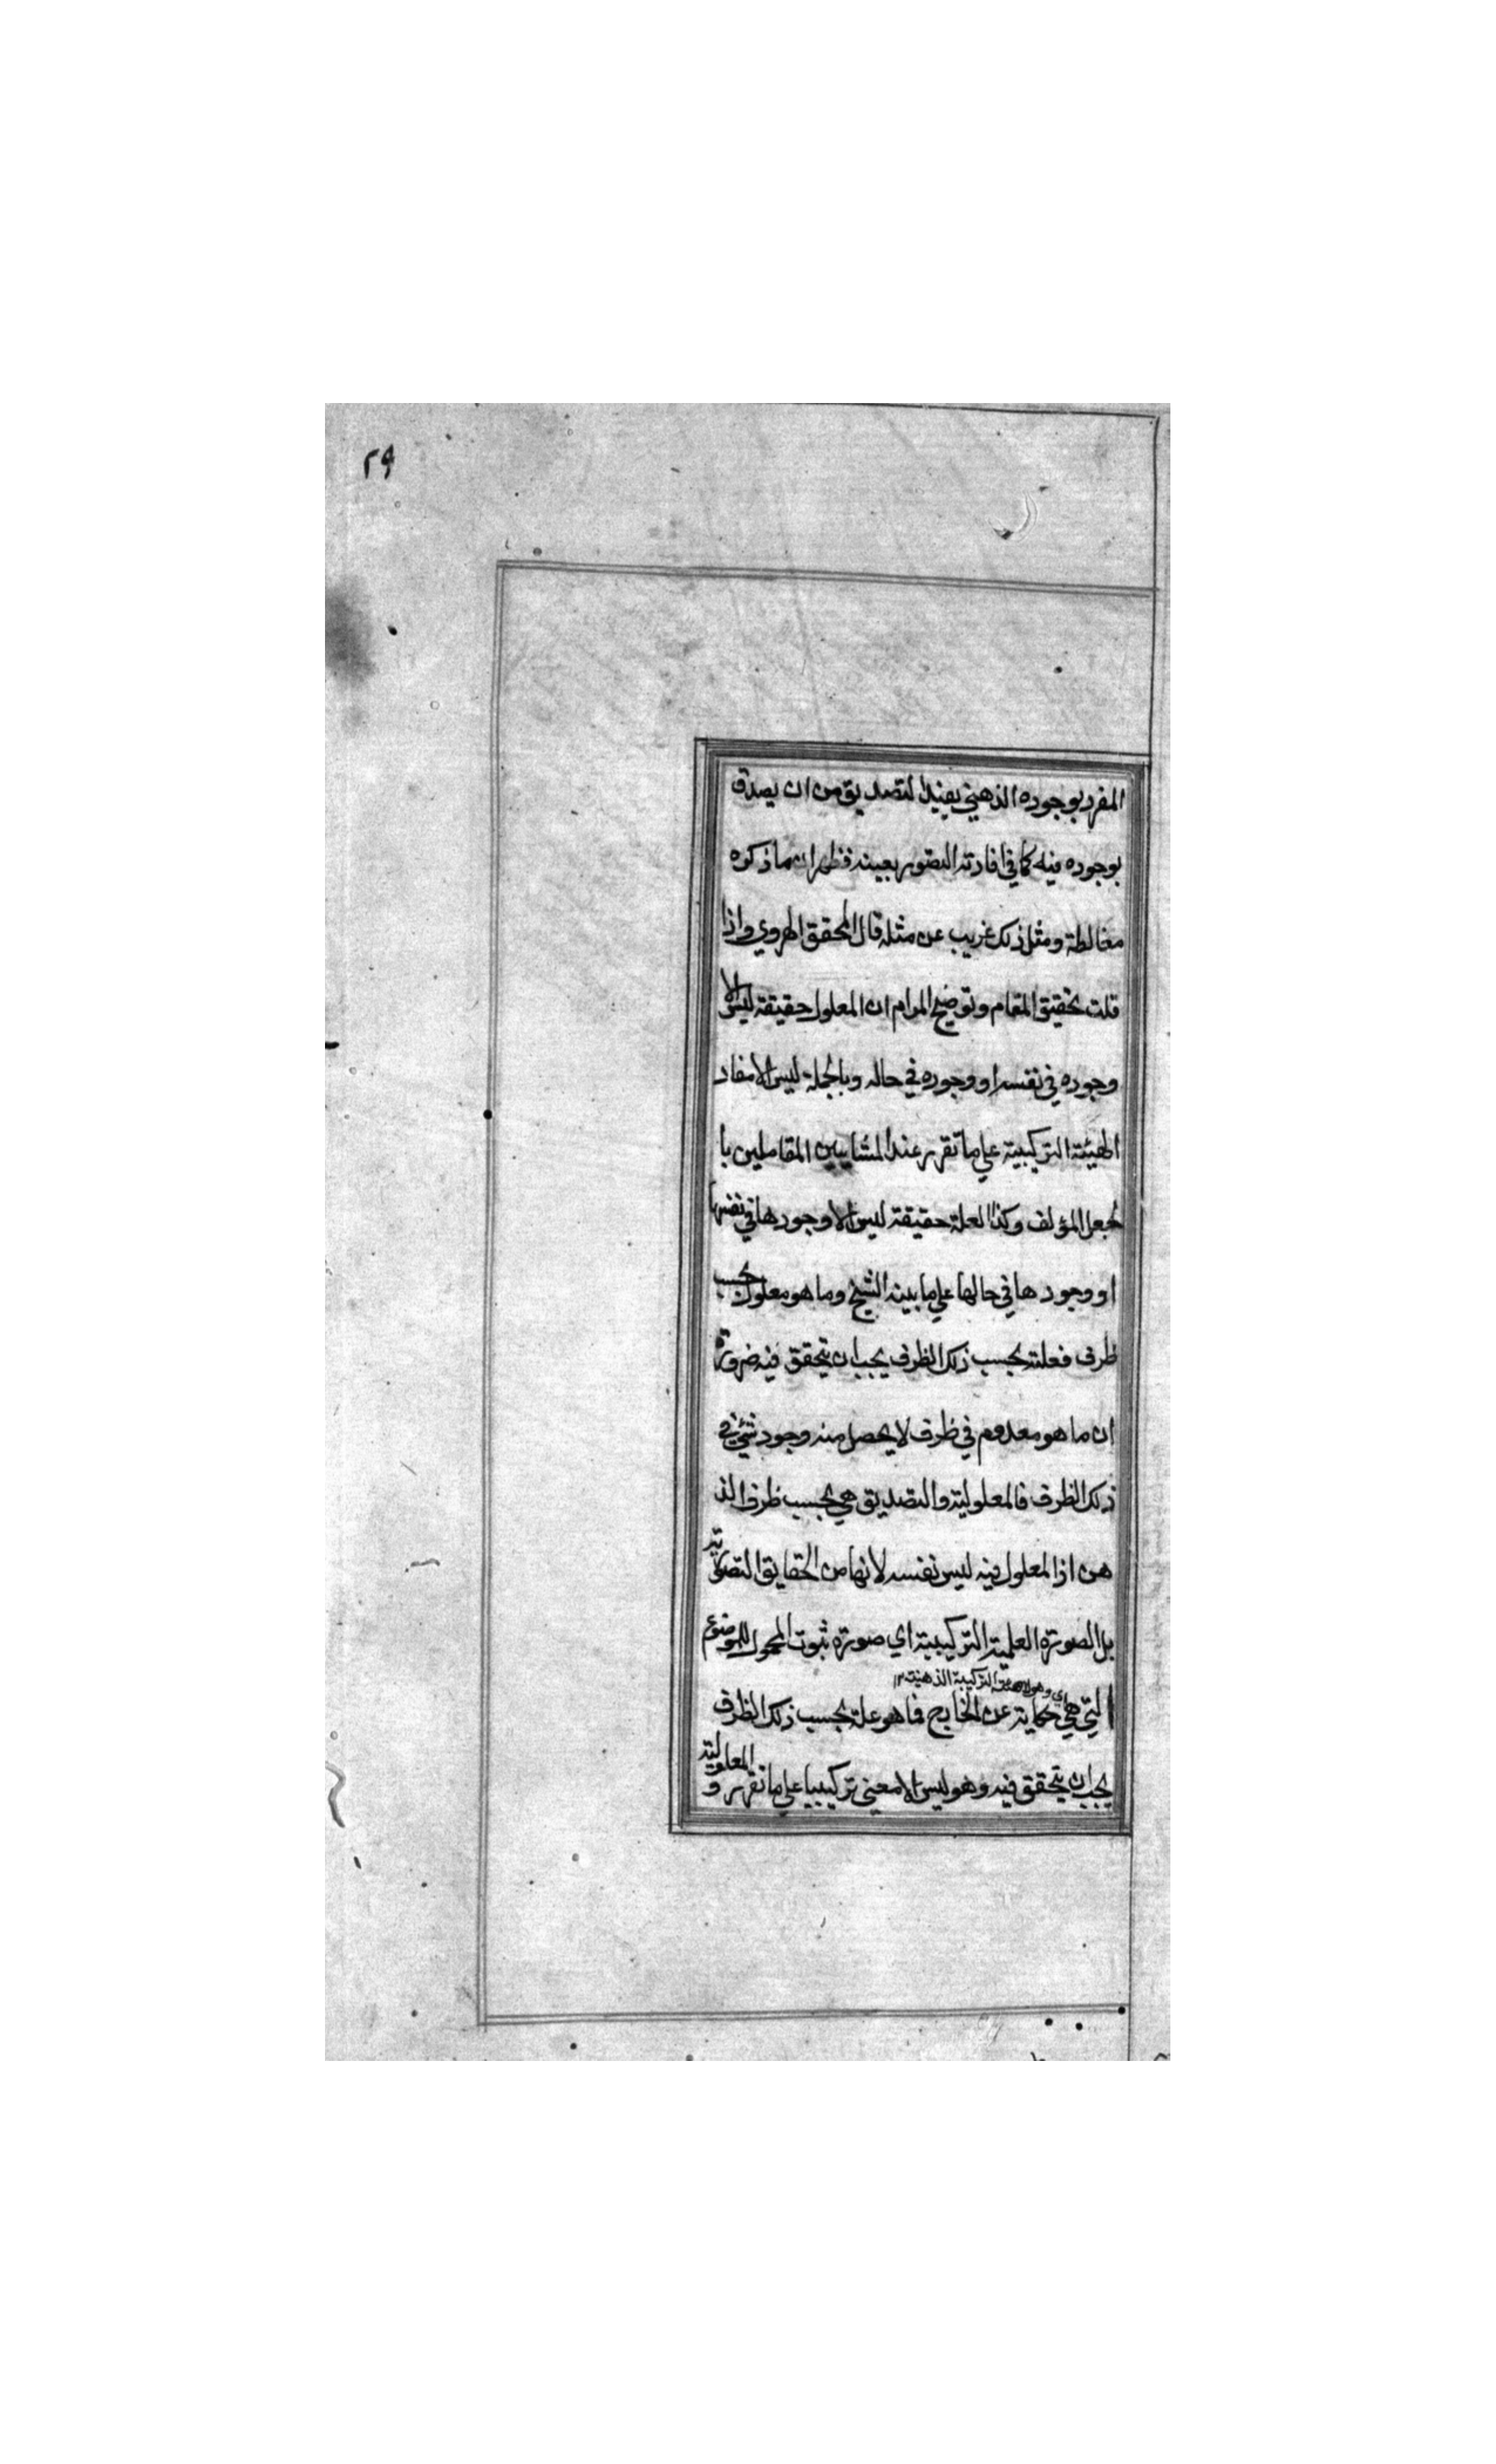 ۲۹
المفرد بوجوده الذهني يفيد التصديق من ان يصدق
بوجوده فيه كما في افادته التصور بعينه فظهر ان ما ذكره
مغالطة ومثل ذلك غريب عن مثله قال المحقق الهروي واذا
قلت تحقيق المقام وتوضيح المرام ان المعلول حقيقة ليس الا
وجوده في نفسه او وجوده في حاله وبالجملة ليس الا مفاد
الهيئة التركيبية على ما تقرر عند المشايين القاملين با
لجعل المؤلف وكذا العلة حقيقة ليس الا وجودها في نفسها
او وجودها في حالها على ما بينه الشيخ وما هو معلول بحسب
ظرف فعلته بحسب ذلك الظرف يجب ان يتحقق فيه ضرورة
ان ما هو معدوم في ظرف لا يحصل منه وجود شيء في
ذلك الظرف فالمعلولية والتصديق هي بحسب ظرف الذ
هن اذ المعلول فيه ليس نفسه لانها من الحقايق التصورية
بل الصورة العلمية التركيبية اي صورة ثبوت المحمول للموضوع
اي وهو الهيئة التركيبة الذهنية ۱۲
التي هي حكاية عن الخارج فما هو علة بحسب ذلك الظرف
يجب ان يتحقق فيه وهو ليس الا معنى تركيبيا على ما تقرر و المعلولية